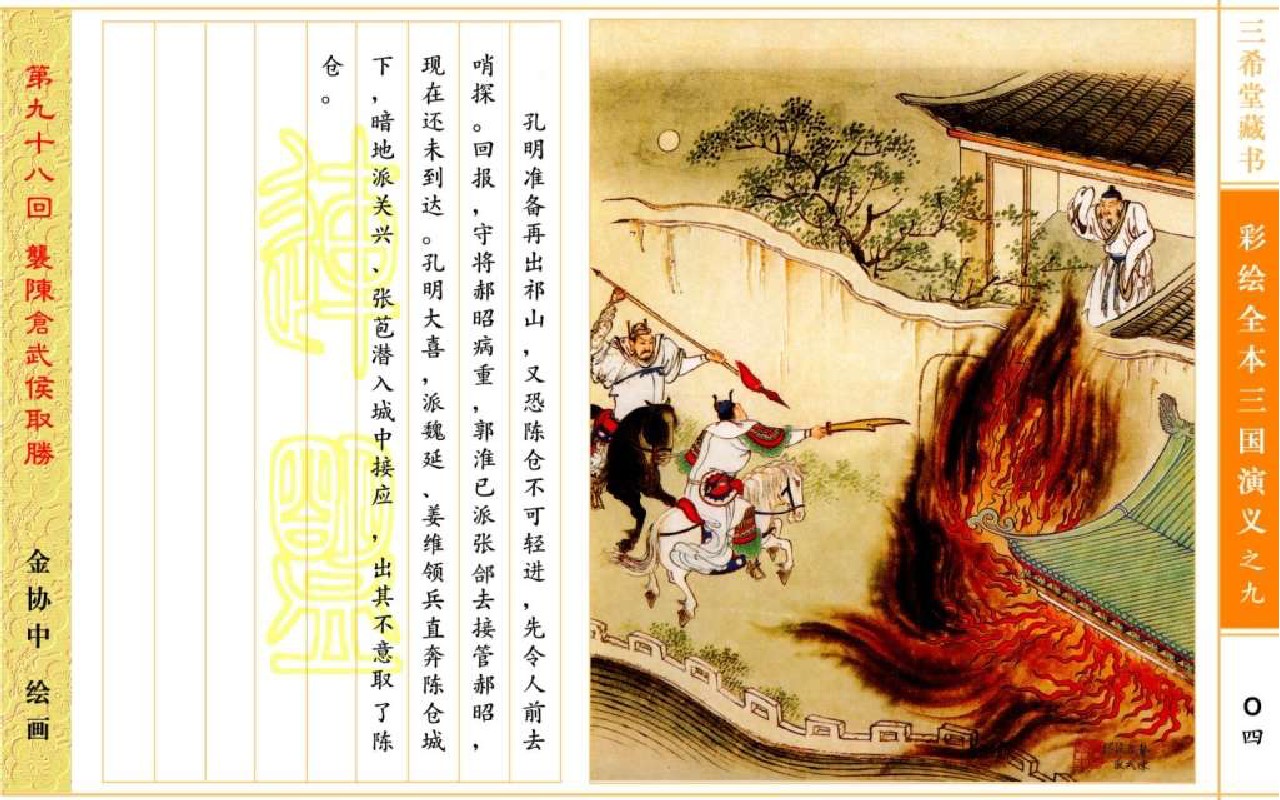 三希堂藏书
彩绘全本三国演义之九
〇四
孔明准备再出祁山，又恐陈仓不可轻进，先令人前去
哨探。回报，守将郝昭病重，郭淮已派张郃去接管郝昭，
现在还未到达。孔明大喜，派魏延、姜维领兵直奔陈仓城
下，暗地派关兴、张苞潜入城中接应，出其不意取了陈
仓。
第九十八回 襲陳倉武侯取勝
金协中 绘画